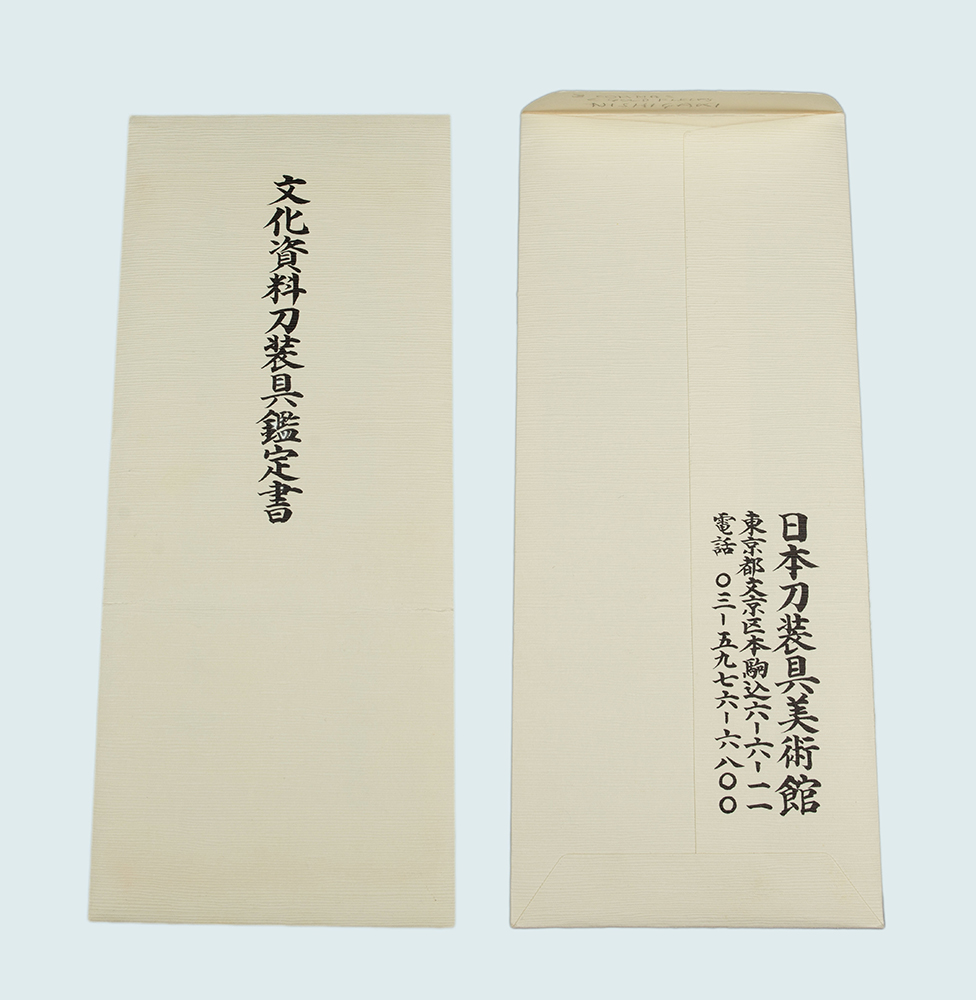 文化資料刀装具鑑定書
日本刀装具美術館
東京都文京区本駒込六ー六ー一一
電話 〇三ー五九七六ー六八〇〇